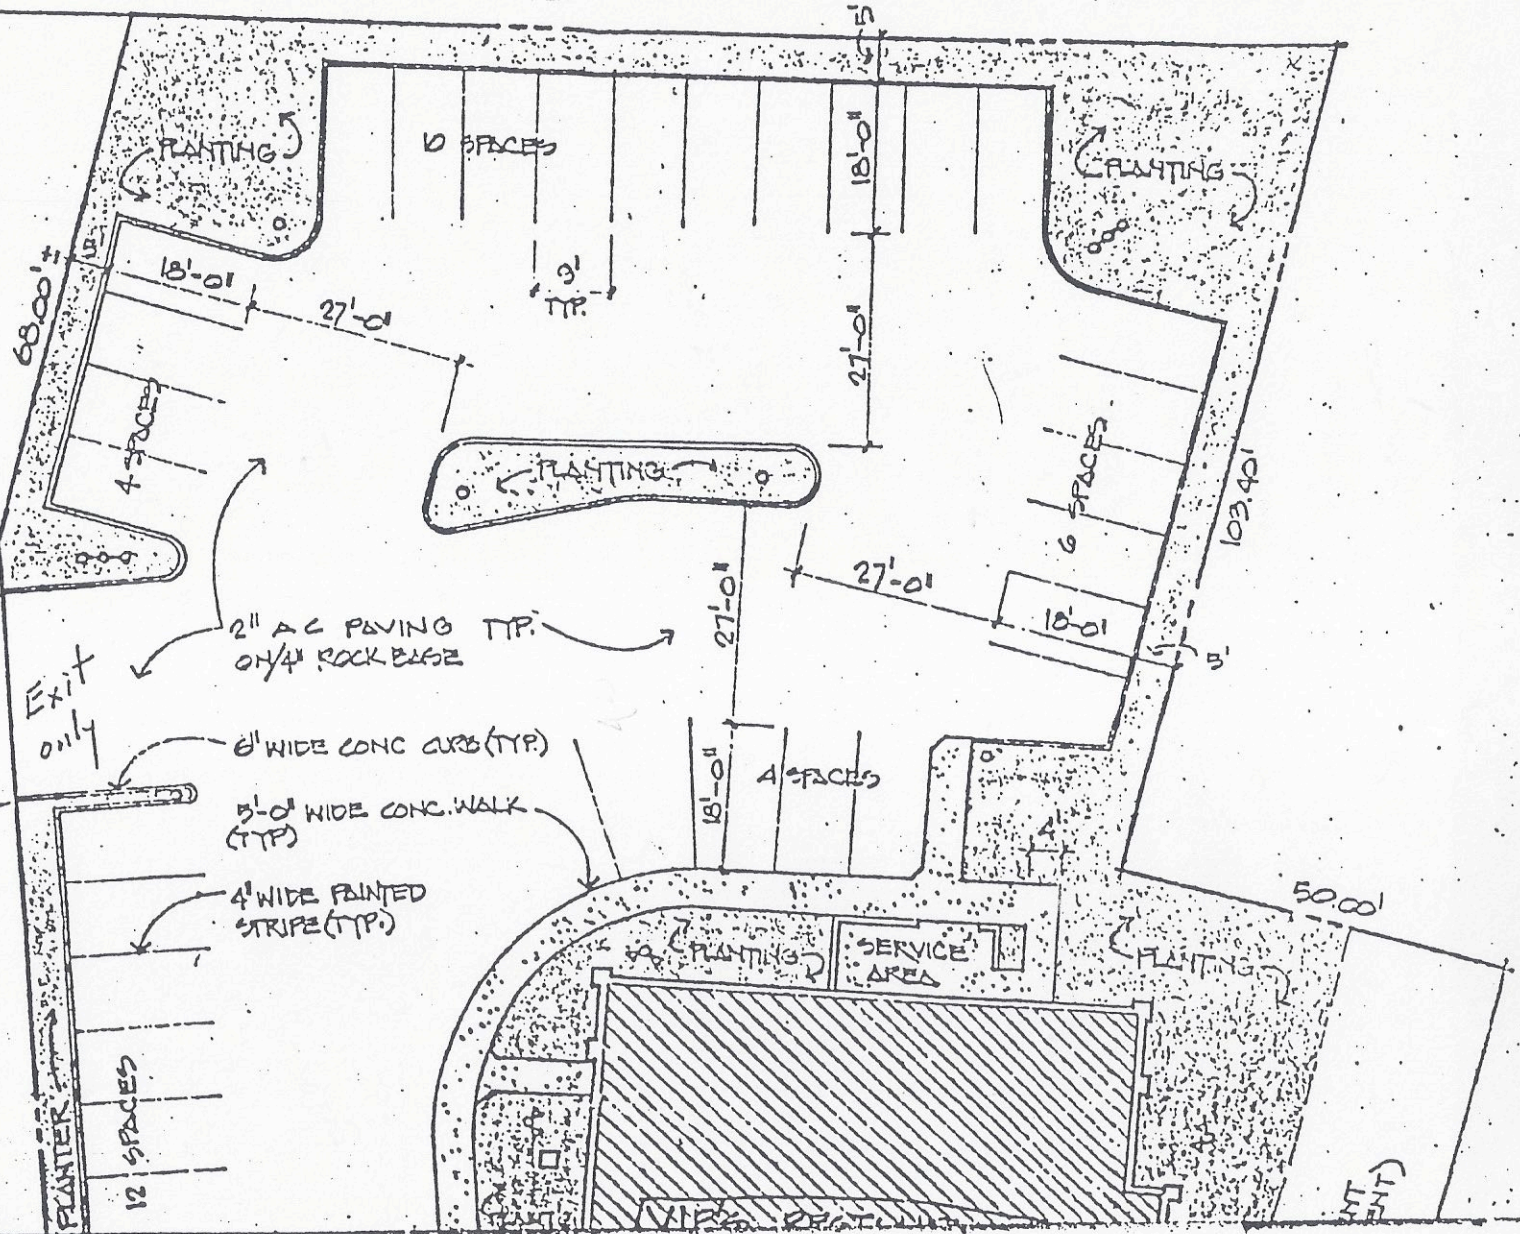 5'
PLANTING
10 SPACES
18'-0"
PLANTING
68.00' ±
5'
18'-0"
27'-0"
9'
TYP.
27'-0"
4 SPACES
PLANTING
6 SPACES
103.40'
27'-0"
27'-0"
18'-0"
5'
2" A C PAVING TYP.
ON/4" ROCK BASE
Exit
only
6" WIDE CONC CURB (TYP.)
18'-0"
4 SPACES
5'-0" WIDE CONC. WALK
(TYP)
4" WIDE PAINTED
STRIPE (TYP.)
50.00'
PLANTING
SERVICE
AREA
PLANTING
PLANTER
12 SPACES